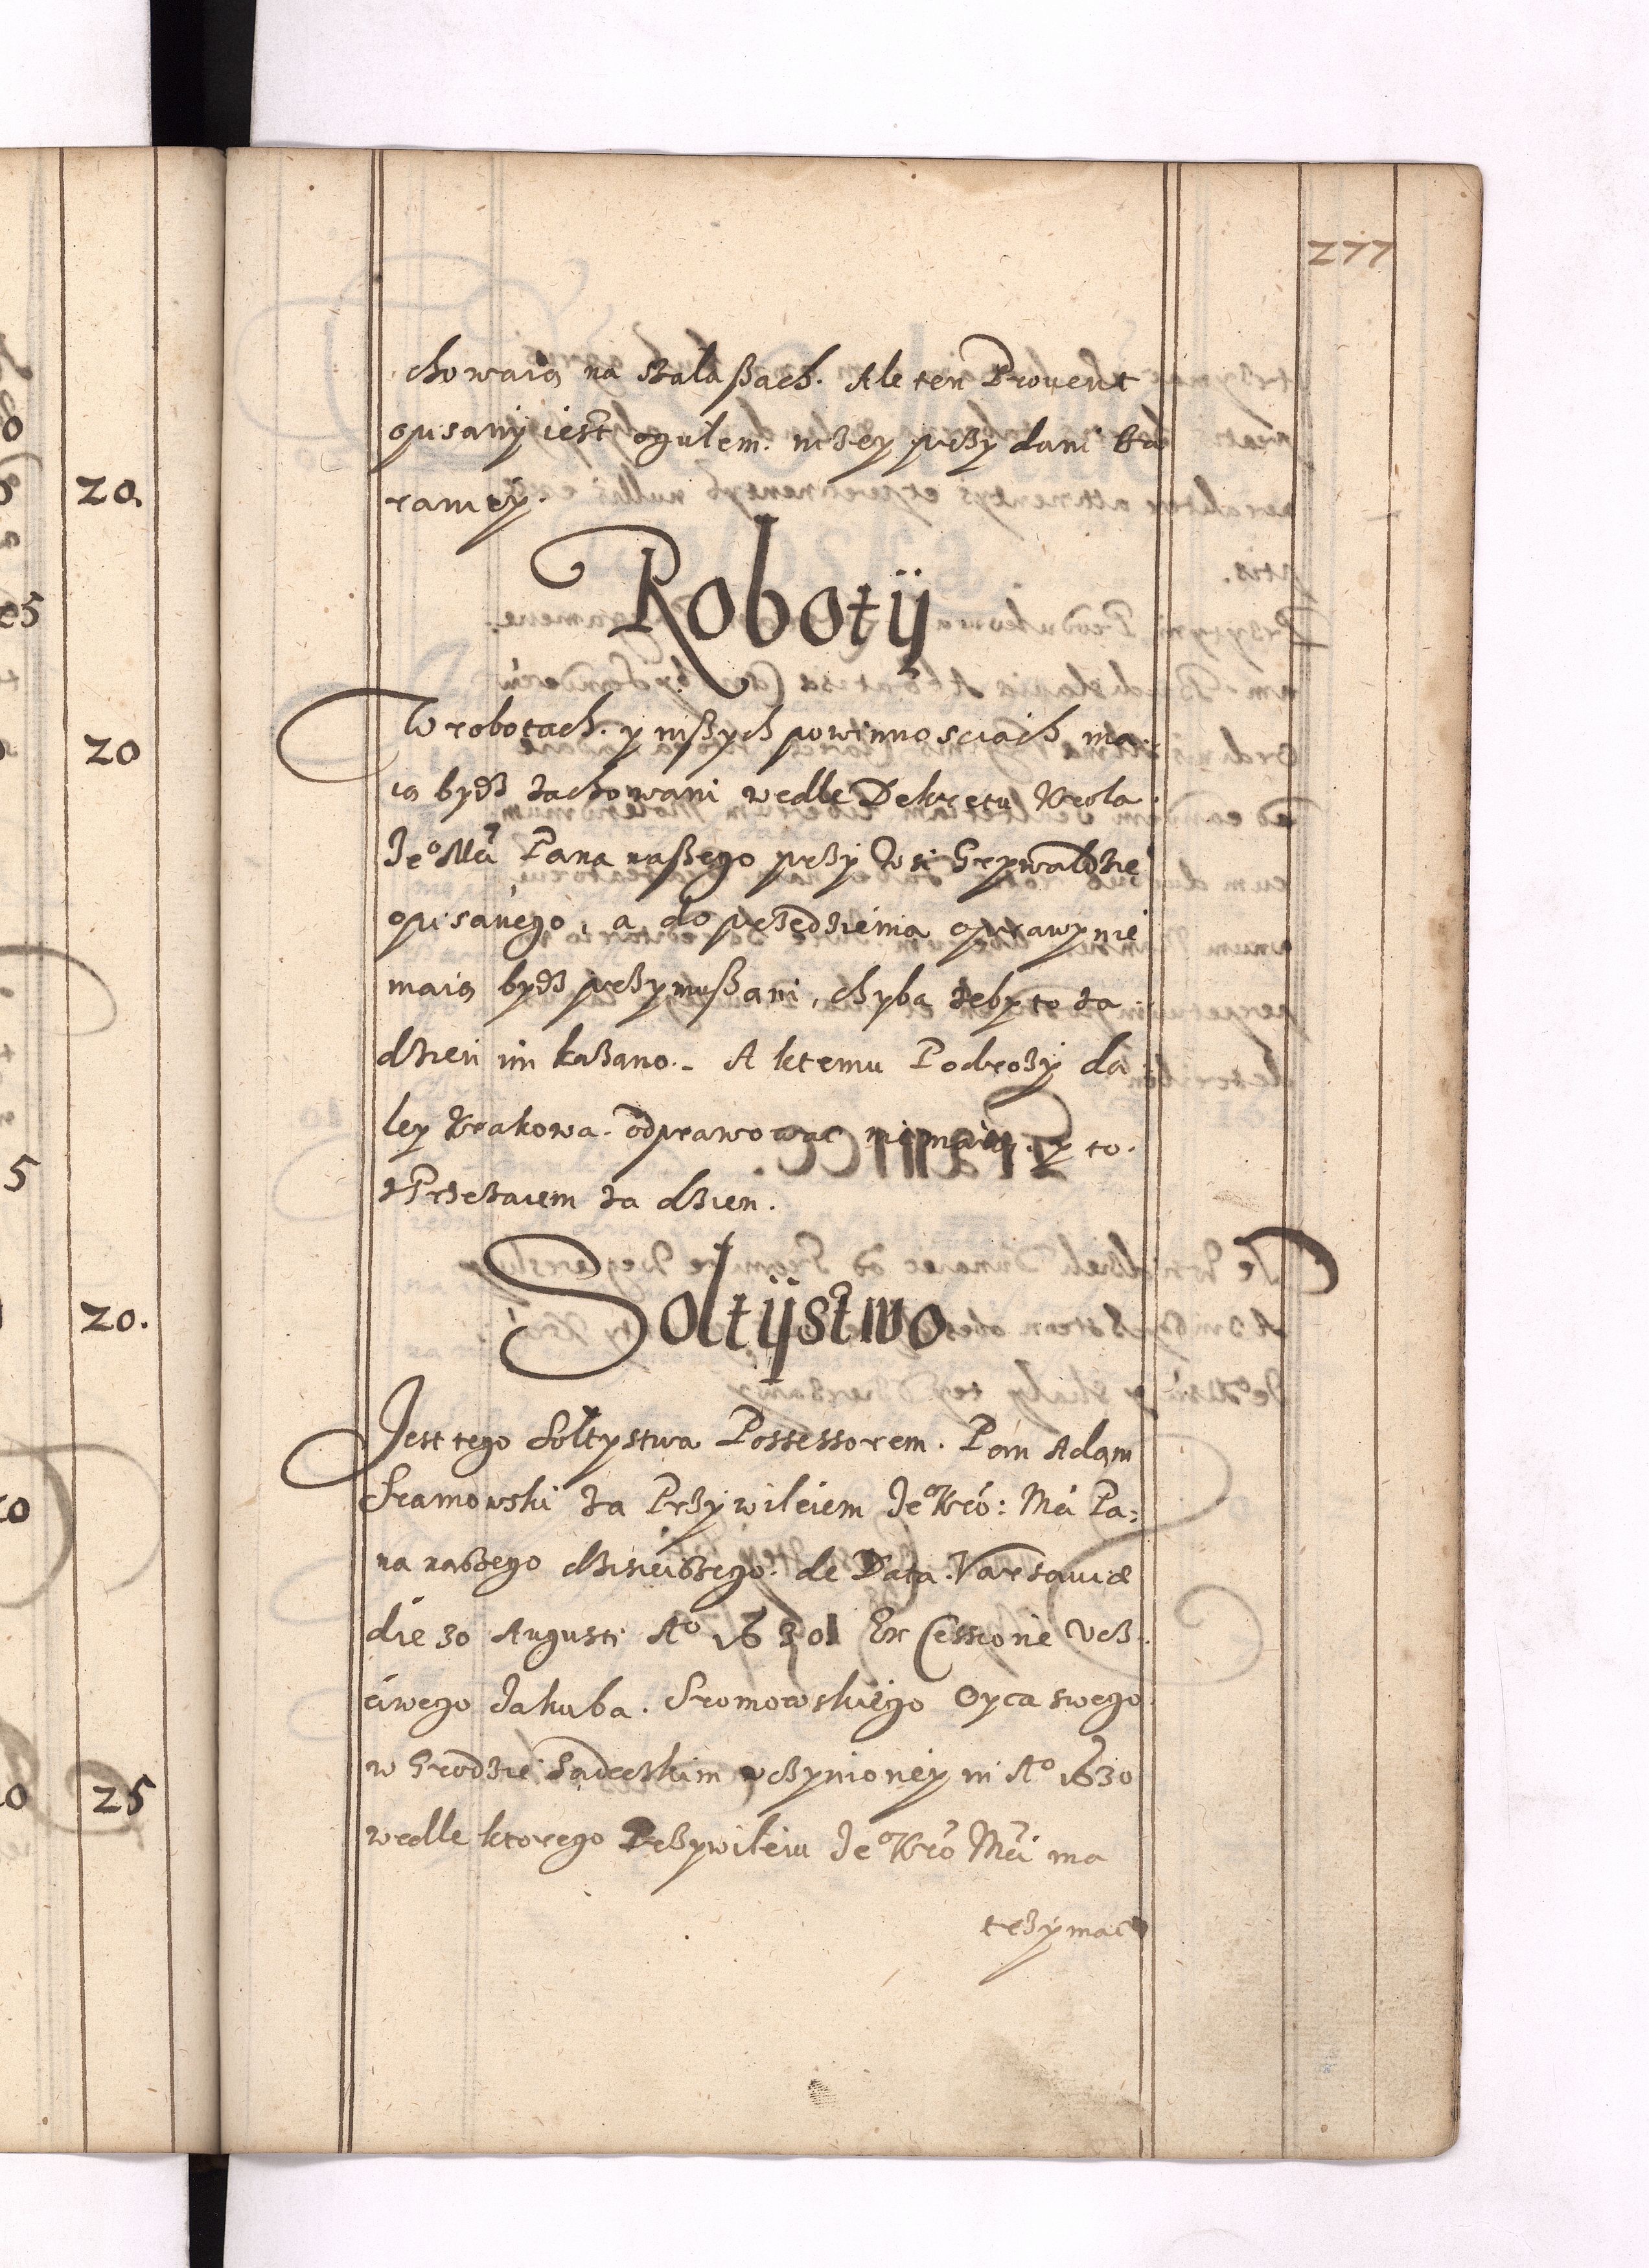 277
chowaią na szalaßach. Ale ten Prouent
opisany iest ogulem. niżey przy dani ba
raniey.
Robotÿ
W robotach. y inßych powinnosciach ma:
ią bydź zachowani wedle Dekretu Krola
Jeᵒ Mći Pana naßego przy Wsi Grywałdzie
opisanego, a do przędzienia oprawy nie
maią bydź przymußani, chyba żeby to za
dzień im kazano. A ktemu Podroży da
ley Krakowa. odprawować nie maią. y to.
z Przeżaiem za dzien.
Soltÿstwo
Jest tego Sołtystwa Possessorem. Pan Adam
Sramowski za Przywileiem Jeᵒ Kró: Mći Pa:
na naszego dzisieiszego. de Data. Varsauiæ
die 30 Augusti Aᵒ 1630 Ex Cessione Ucz:
ciwego Jakuba. Sromowskiego Oyca swego
w Grodzie Sądeckim uczynioney in Aᵒ 1630
wedle ktorego Przywileiu Jeᵒ Kró Mći ma
trzymać
20.
20
20.
25